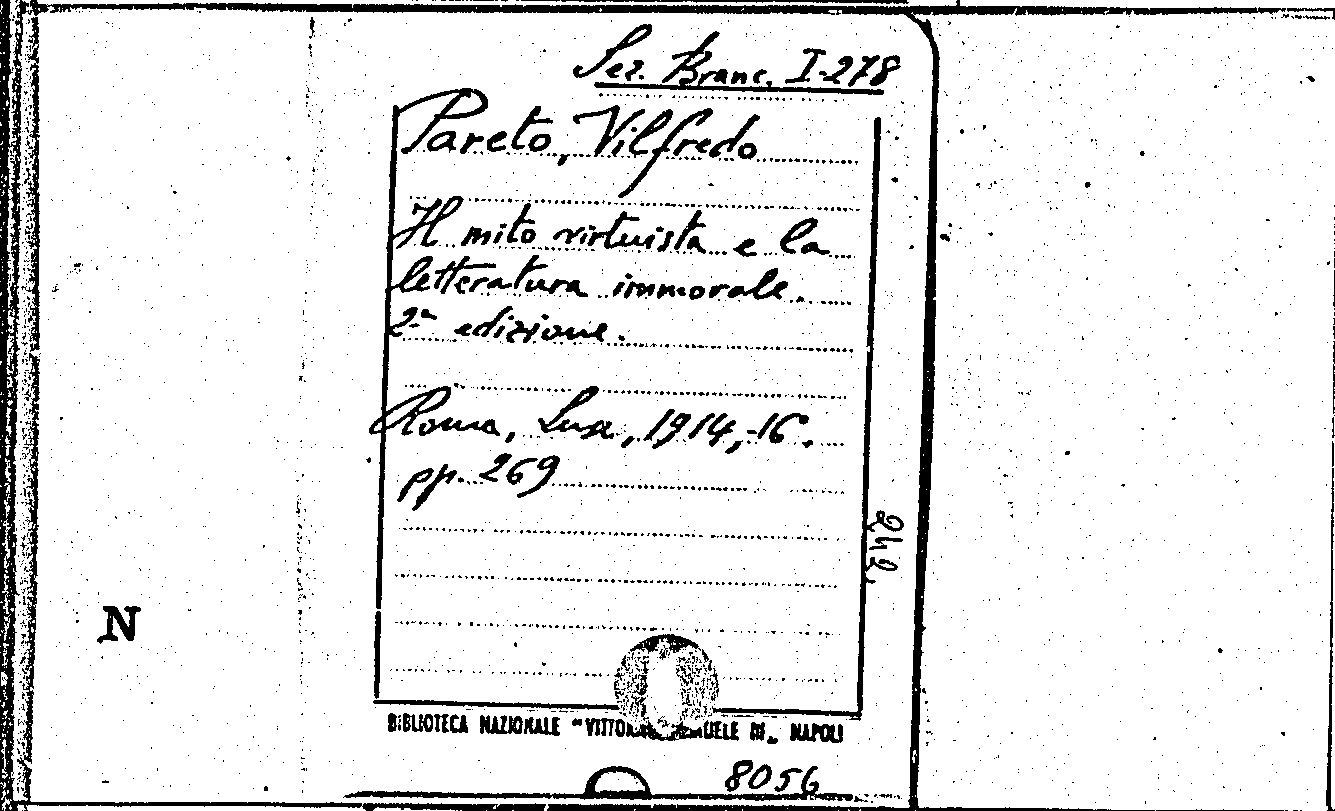 Sez. Branc. I-278
Pareto, Vilfredo
Il mito virtuista e la
letteratura immorale.
2ª edizione.
Roma, Lux, 1914,-16.
pp. 269
242.
N
BIBLIOTECA NAZIONALE "VITTORIO EMANUELE III„ NAPOLI
8056